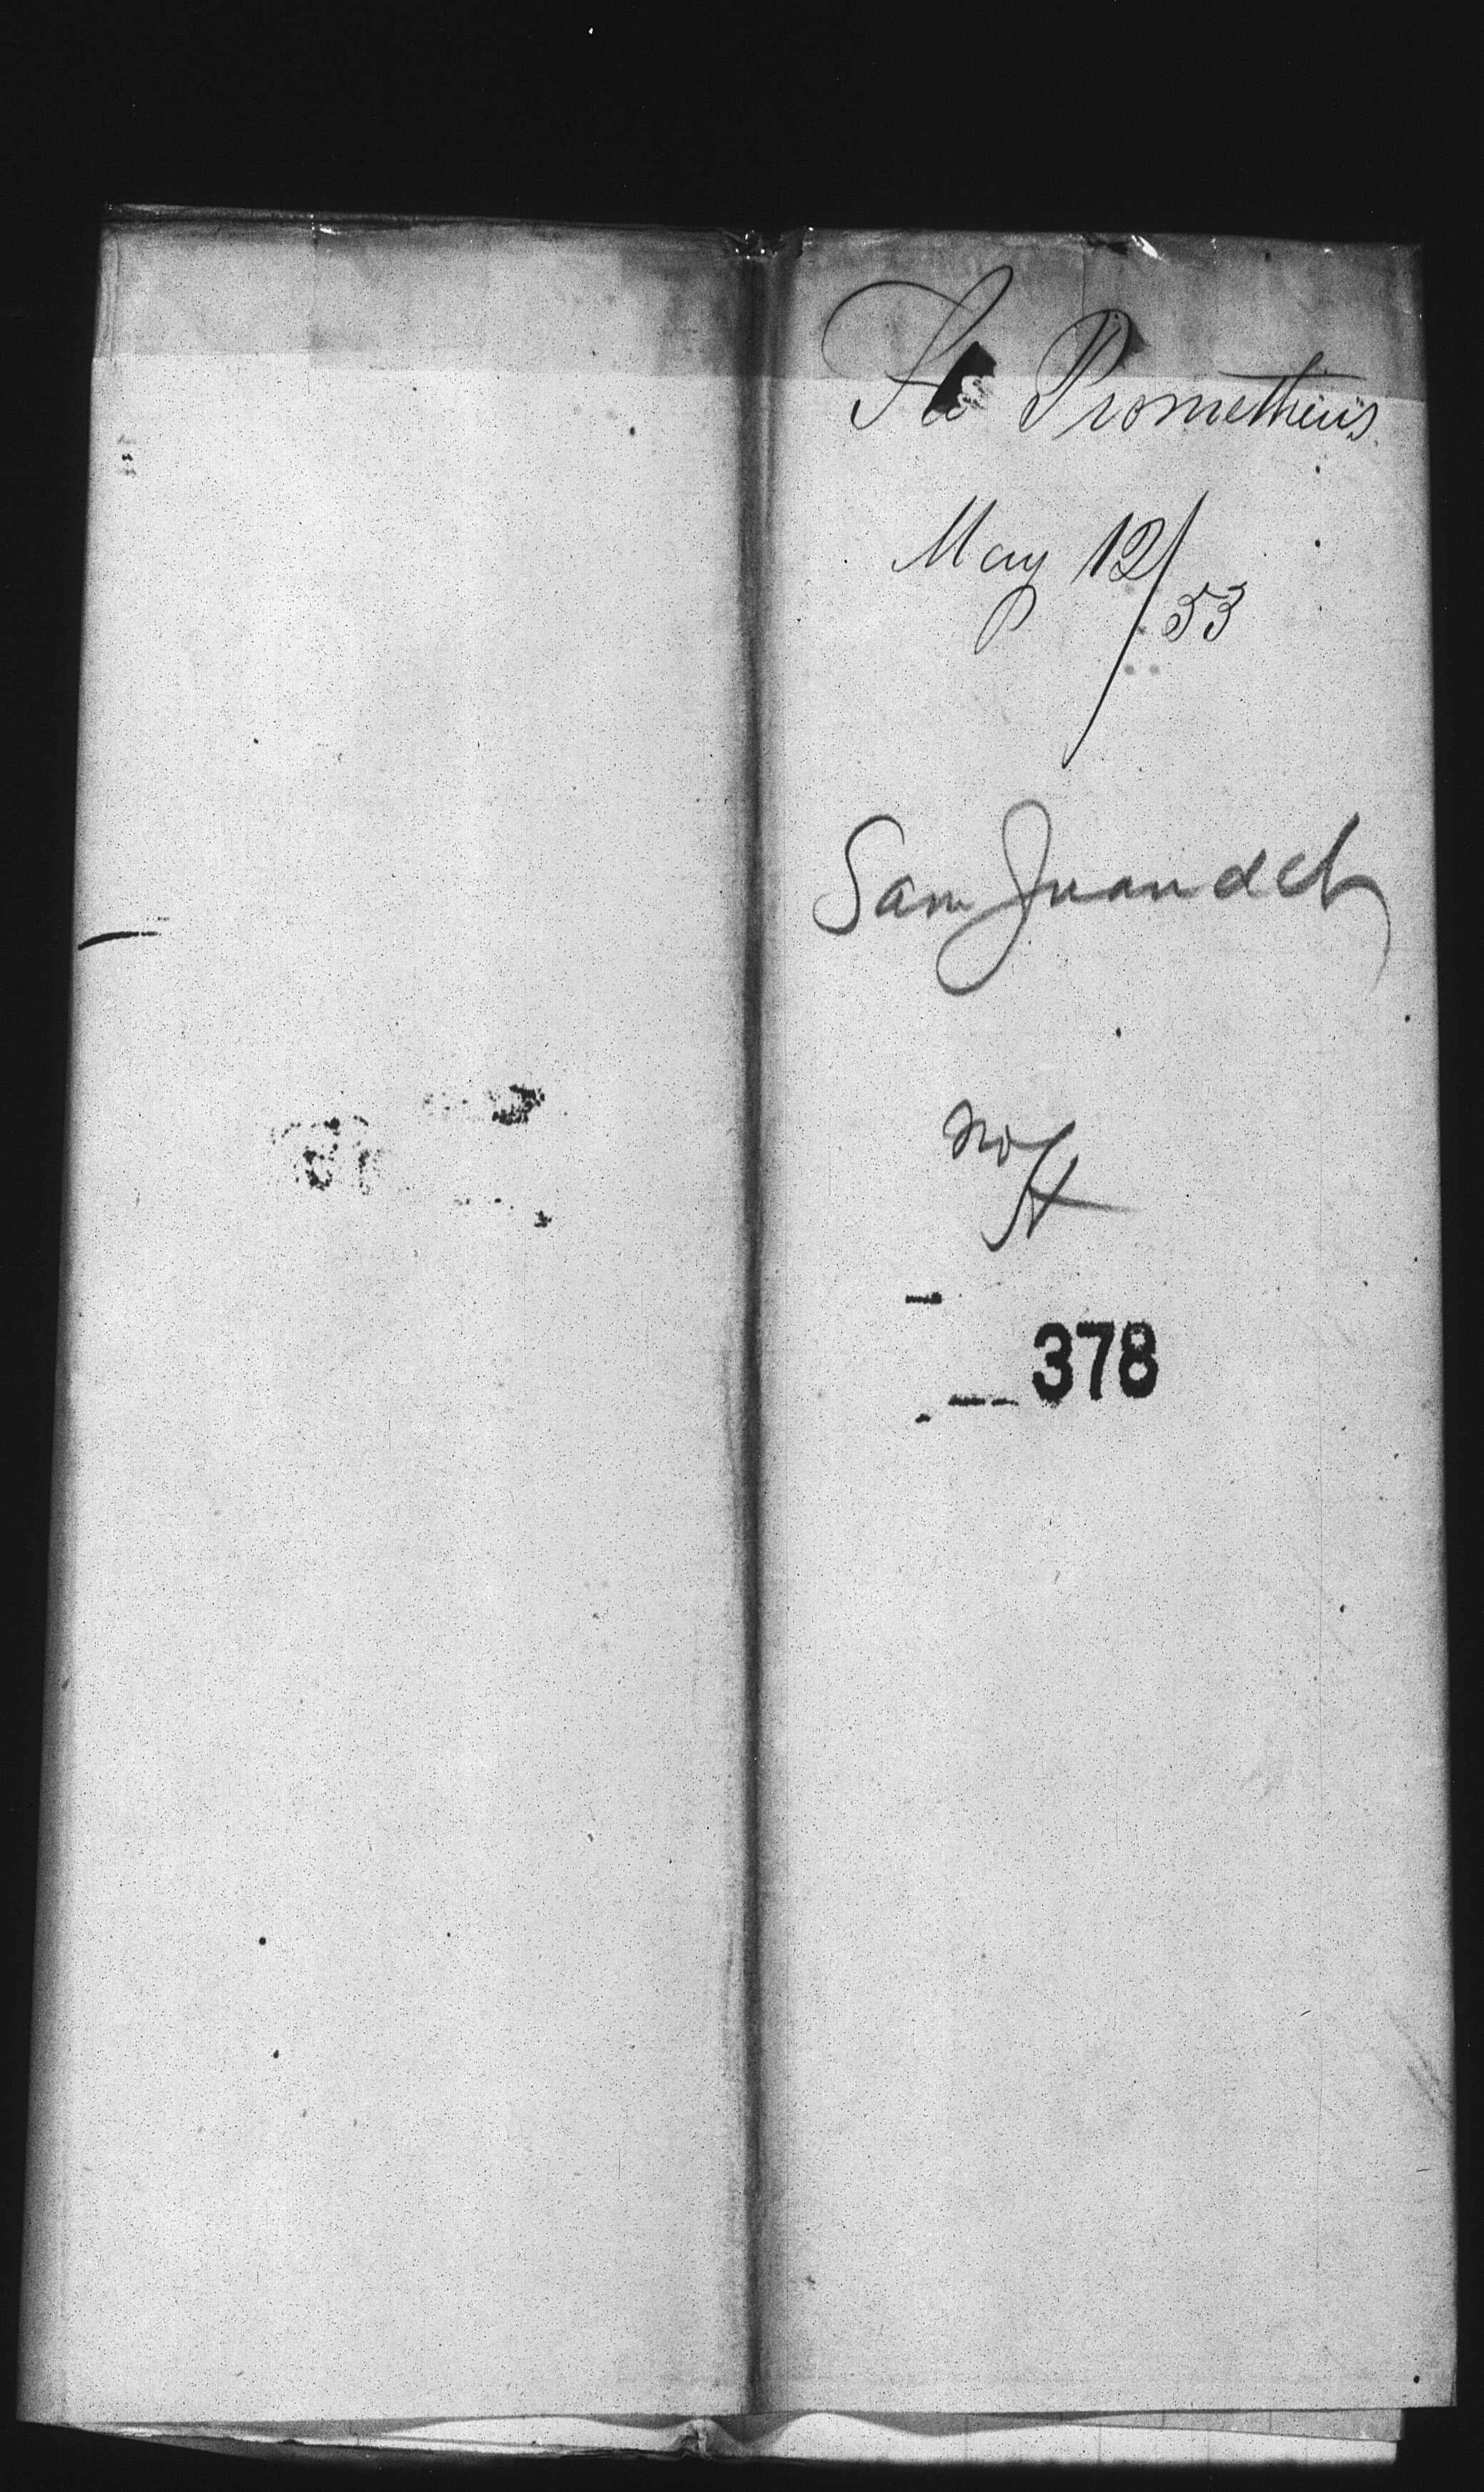 Str Prometheus
May 12/53
San Juan del
No H
378